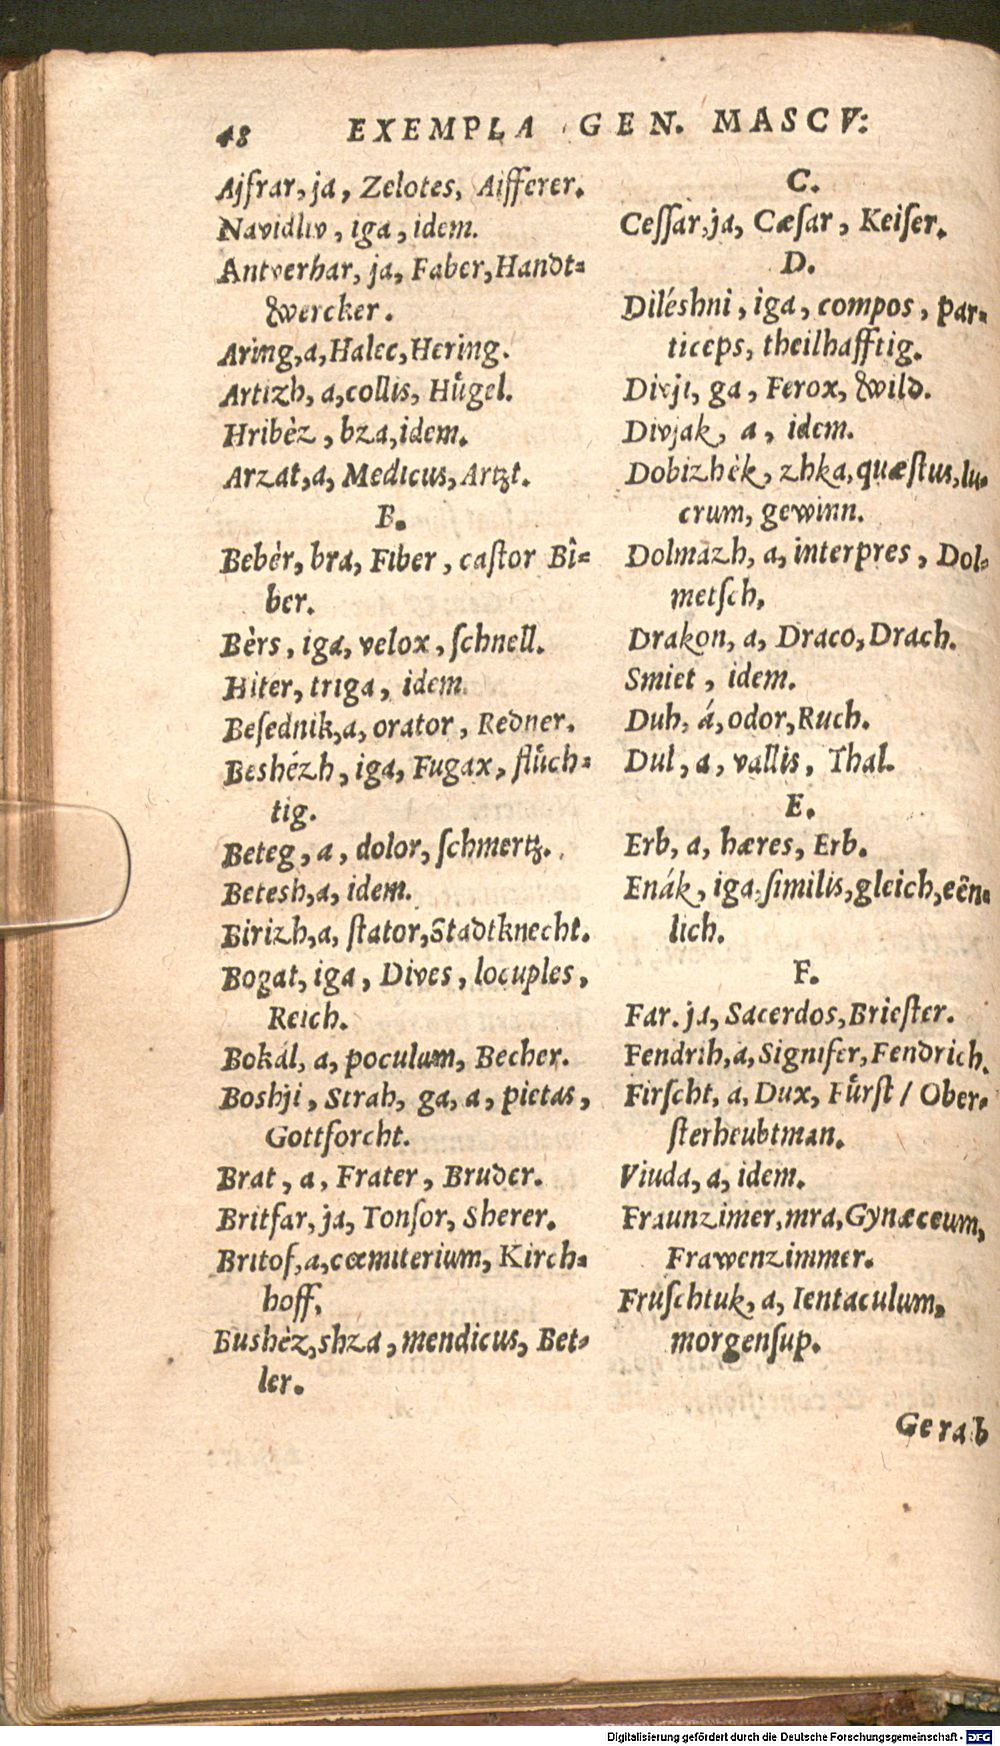 48 EXEMPLA GEN. MASCV:
Ajfrar, ja, Zelotes, Aifferer.
Navidliv, iga, idem.
Antverhar, ja, Faber, Handt=
wercker.
Aring, a, Halec, Hering.
Artizh, a, collis, Hügel.
Hribèz, bza, idem.
Arzat, a, Medicus, Artzt.
B.
Bebèr, bra, Fiber, caſtor Bî=
ber.
Bèrs, iga, velox, ſchnell.
Hiter, triga, idem.
Beſednik, a, orator, Redner.
Beshézh, iga, Fugax, flüch=
tig.
Beteg, a, dolor, ſchmertz.
Betesh, a, idem.
Birizh, a, ſtator, Stadtknecht.
Bogat, iga, Dives, locuples,
Reich.
Bokál, a, poculum, Becher.
Boshji, Strah, ga, a, pietas,
Gottforcht.
Brat, a, Frater, Bruder.
Britfar, ja, Tonſor, Sherer.
Britof, a, cœmiterium, Kirch=
hoff,
Bushèz, shza, mendicus, Bet=
ler.
C.
Ceſſar, ja, Cæſar, Keiſer.
D.
Diléshni, iga, compos, par=
ticeps, theilhafftig.
Divji, ga, Ferox, wild.
Divjak, a, idem.
Dobizhèk, zhka, quæſtus, lu=
crum, gewinn.
Dolmazh, a, interpres, Dol=
metſch,
Drakon, a, Draco, Drach.
Smiet, idem.
Duh, á, odor, Ruch.
Dul, a, vallis, Thal.
E.
Erb, a, hæres, Erb.
Enák, iga, ſimilis, gleich, eên=
lich.
F.
Far. ja, Sacerdos, Brieſter.
Fendrih, a, Signifer, Fendrich.
Firſcht, a, Dux, Fürſt / Ober=
ſterheubtman.
Viuda, a, idem.
Fraunzimer, mra, Gynæceum,
Frawenzimmer.
Fruſchtuk, a, Ientaculum,
morgenſup.
Gerab
Digitalisierung gefördert durch die Deutsche Forschungsgemeinschaft - DFG